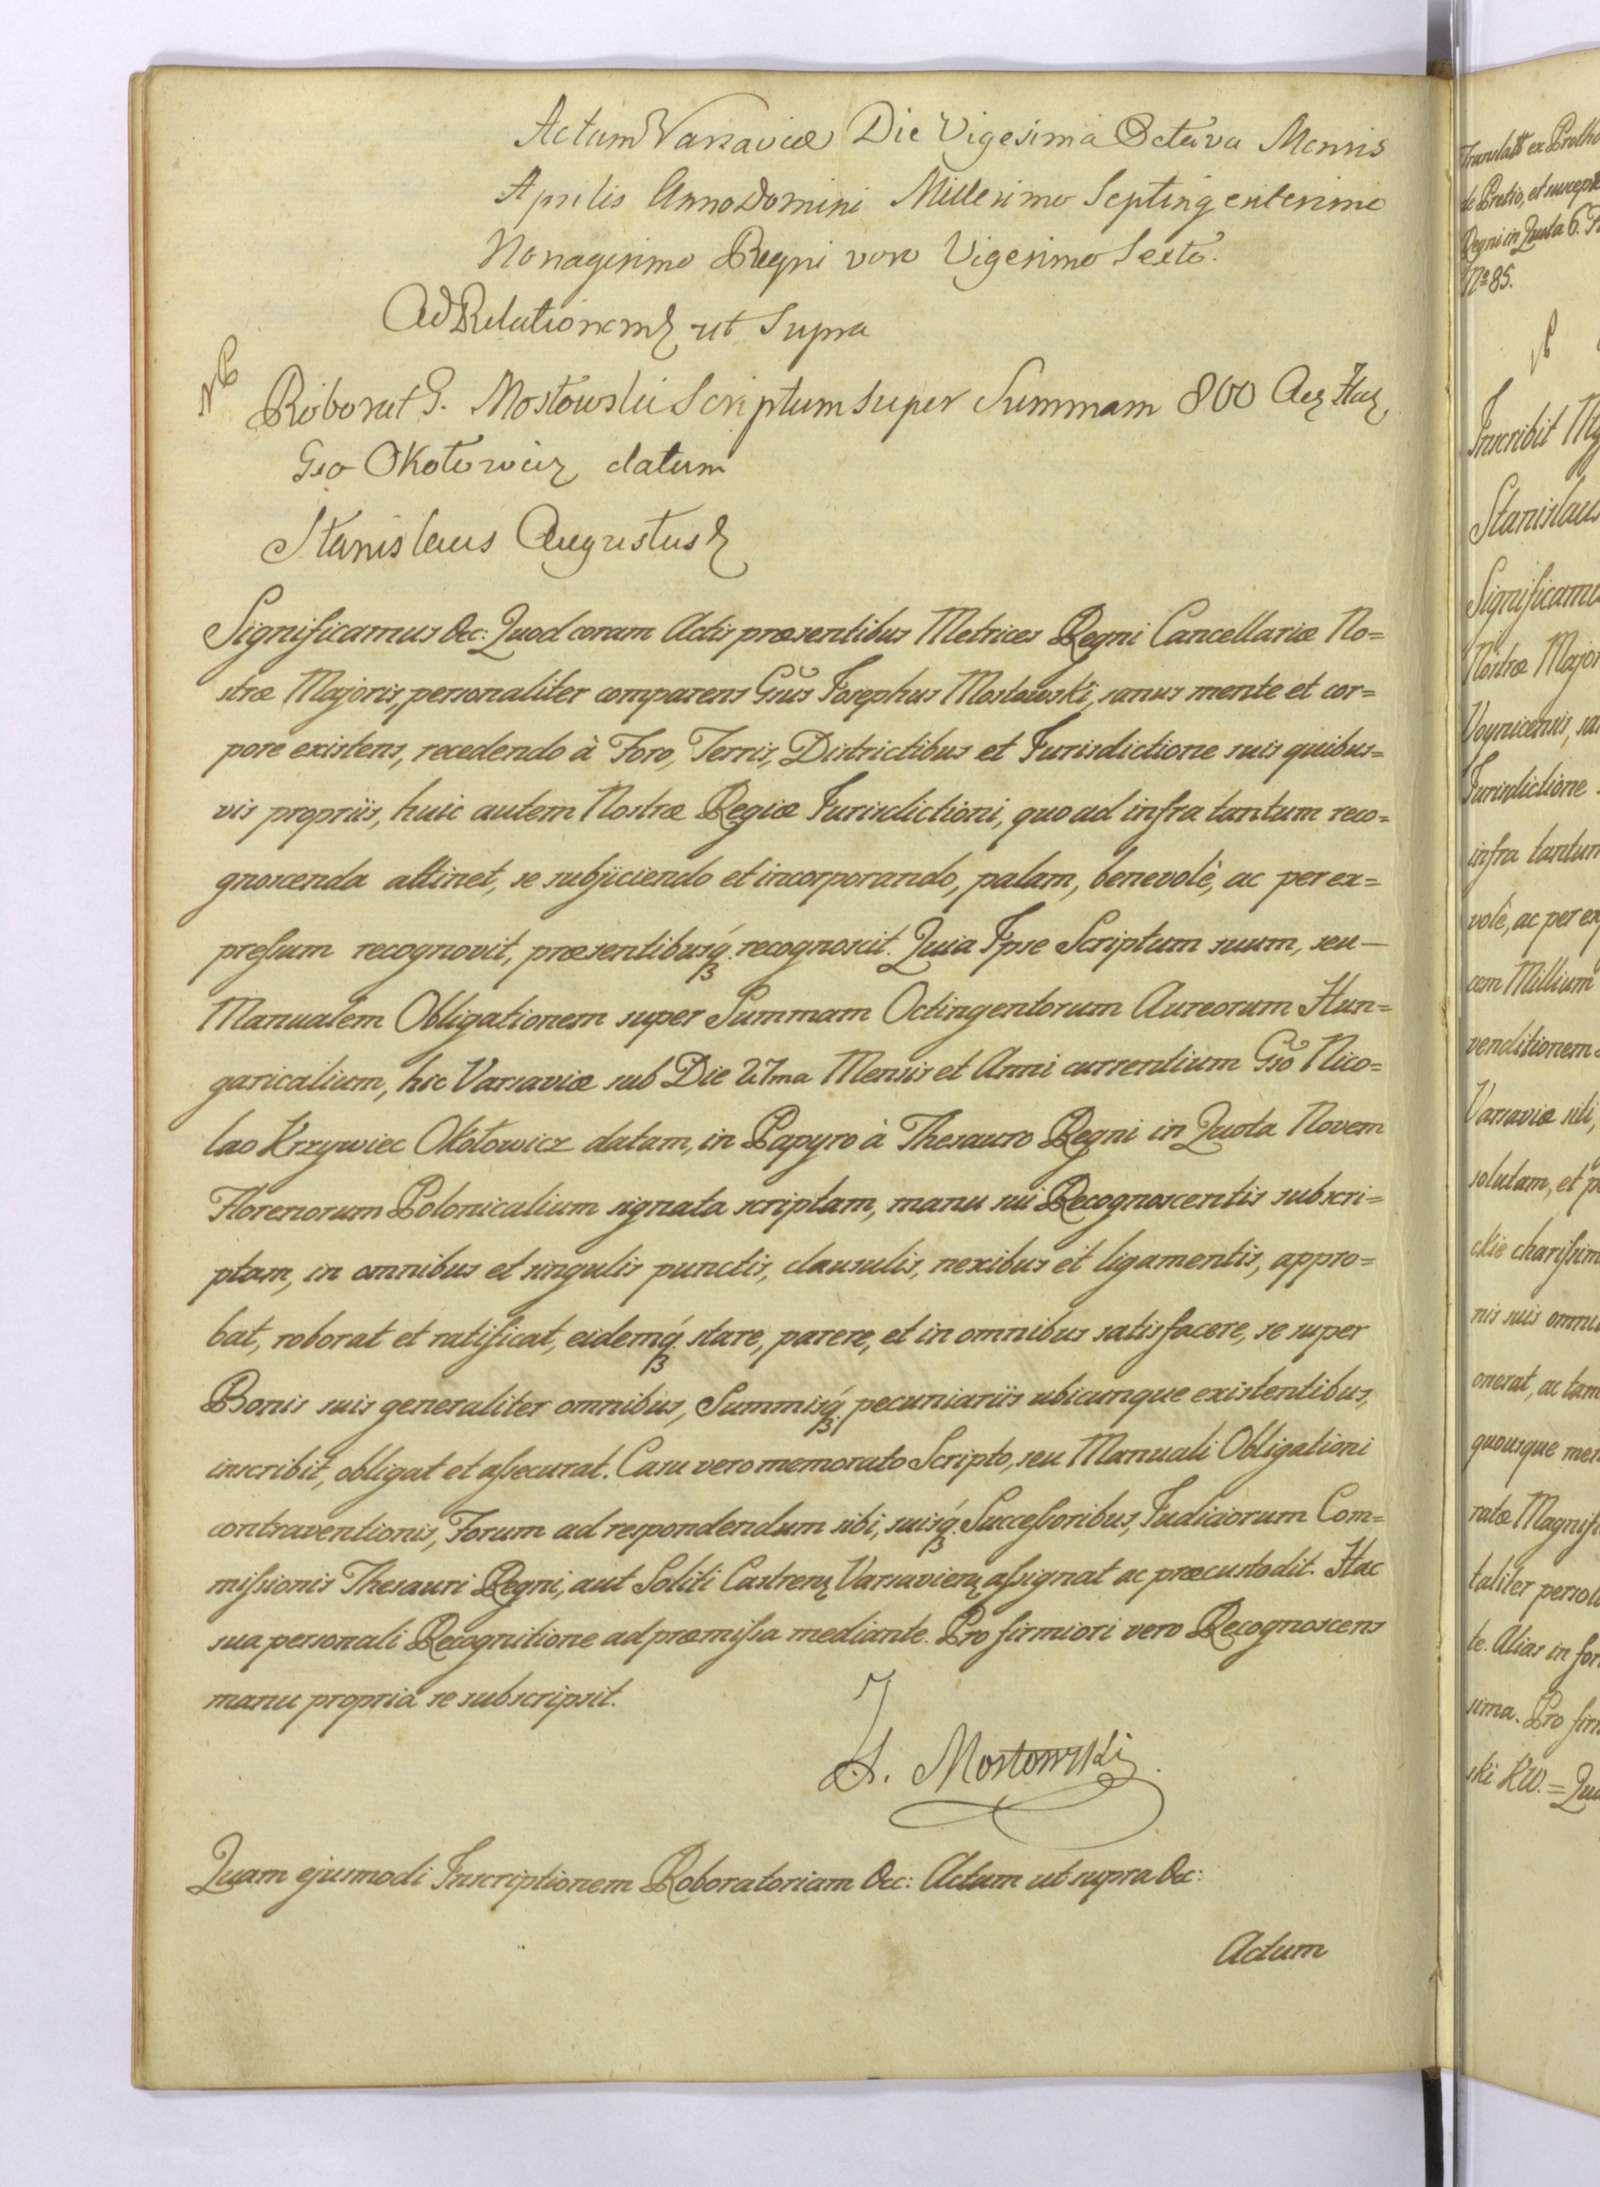 Actum Varsaviæ Die Vigesima Octava Mensis
Aprilis Anno Domini Millesimo Septingentesimo
Nonagesimo Regni vero Vigesimo Sexto.
Ad Relationem ut Supra
Roborat G. Mostowski Scriptum super Summam 800
Gso Okołowicz datum
Stanislaus Augustus
Significamus &c: Quod coram Actis præsentibus Metrices Regni Cancellariæ No=
stræ Majoris, personaliter comparens Gsus Josephus Mostowski, sanus mente et cor=
pore existens, recedendo à Foro, Terris, Districtibus et Jurisdictione suis quibus=
vis propriis, huic autem Nostræ Regiæ Jurisdictioni, quo ad infra tantum reco=
gnoscenda attinet, se subjiciendo et incorporando, palam, benevolè, ac per ex=
pressum recognovit, præsentibusq́ꝫ recognoscit. Quia Ipse Scriptum suum, seu —
Manualem Obligationem super Summam Octingentorum Aureorum Hun=
garicalium, hic Varsaviæ sub Die 27ma Mensis et Anni currentium Gso Nico=
lao Krzywiec Okołowicz datam, in Papyro à Thesauro Regni in Quota Novem
Florenorum Polonicalium signata scriptam, manu sui Recognoscentis subscri=
ptam, in omnibus et singulis punctis, clausulis, nexibus et ligamentis, appro=
bat, roborat et ratificat, eidemq́ꝫ stare, parere, et in omnibus satisfacere, se super
Bonis suis generaliter omnibus, Summisq́ꝫ pecuniariis ubicunque existentibus,
inscribit, obligat et assecurat. Casu vero memorato Scripto, seu Manuali Obligationi
contraventionis, Forum ad respondendum sibi, suisq́ꝫ Successoribus, Judiciorum Com=
missionis Thesauri Regni, aut Soliti Castrenꝫ Varsavienꝫ assignat ac præcustodit. Hac
sua personali Recognitione ad præmissa mediante. Pro firmiori vero Recognoscens
manu propria se subscripsit.
J. Mostowski.
Quam ejusmodi Inscriptionem Roboratoriam &c: Actum ut supra &c:
Actum
de Pretio, et
Regni in Quota 6.
No 85.
Inscribit
Stanislaus
Significamus
Nostræ Major
Jurisdictione
infra tantum
volè, ac per ex
cem Millium
venditionem
Varsaviæ siti,
solutam, et
ckie charissim
nis suis omni
onerat, ac tam
quousque
ratæ Magnifi
taliter persol
te. Alias in for
sima. Pro firm
ski KW. =